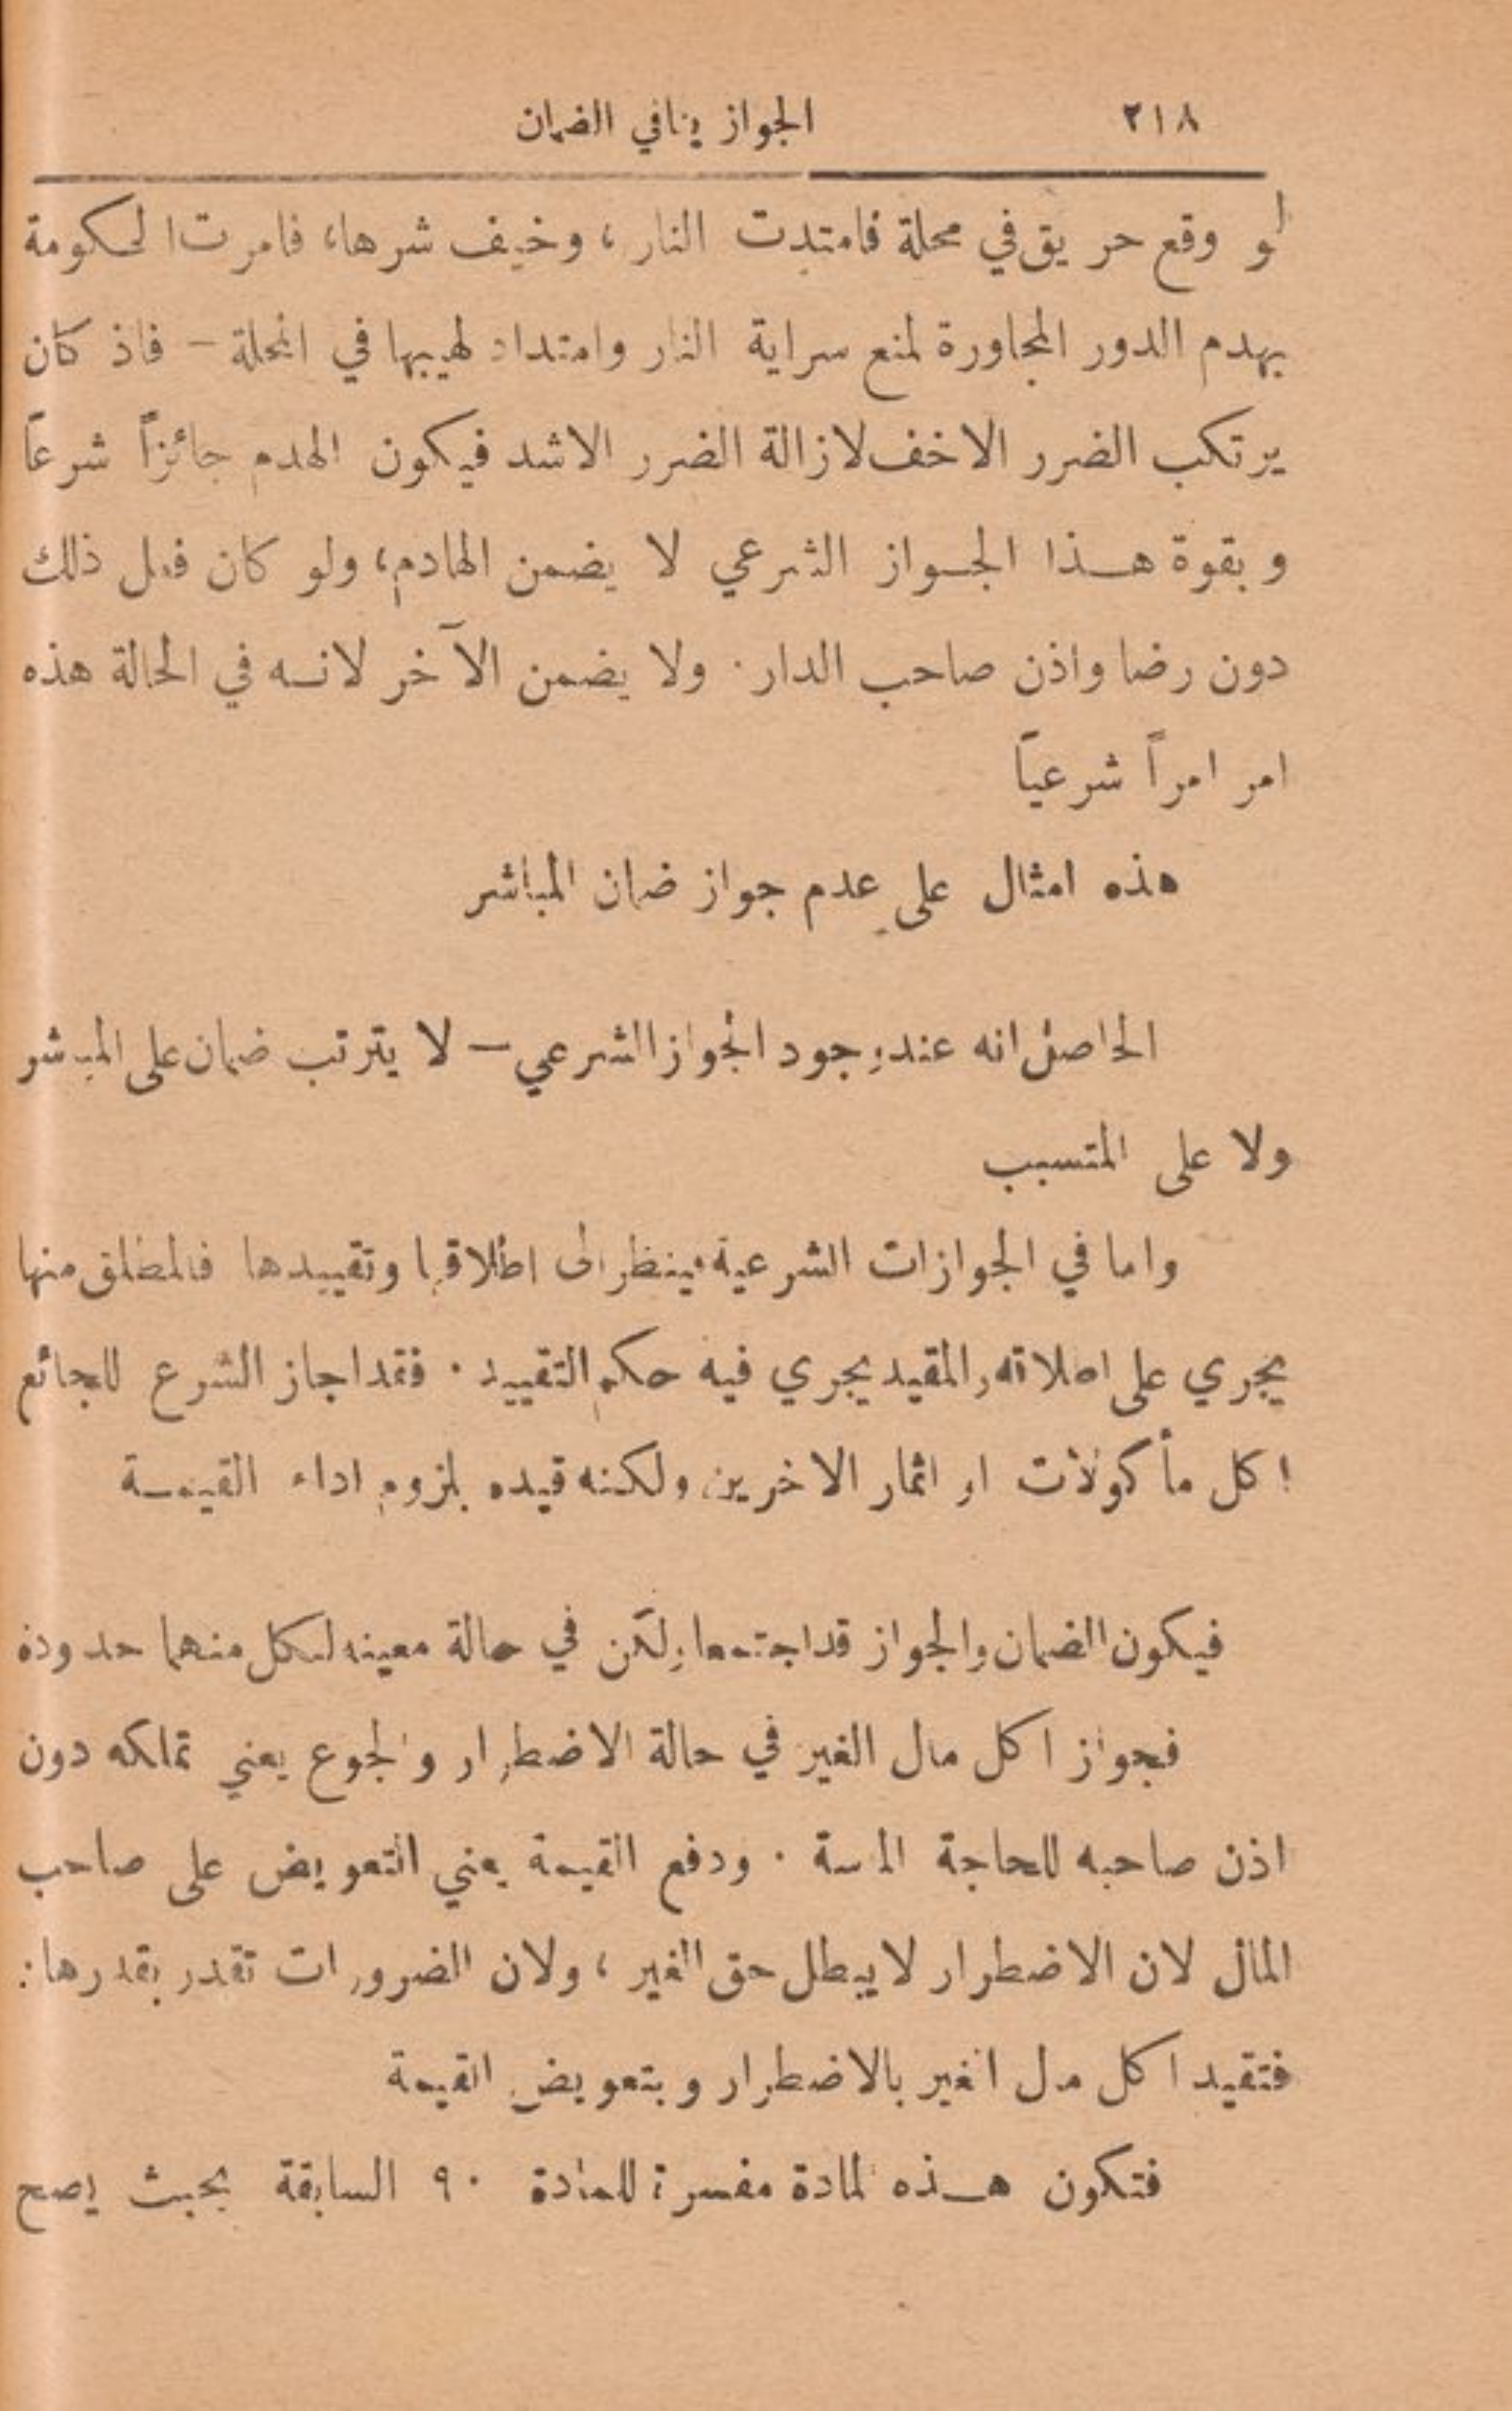 ٢١٨ الجواز ينافي الضمان
لو وقع حريق في محلة فامتدت النار ، وخيف شرها، فامرت الحكومة
بهدم الدور المجاورة لمنع سراية النار وامتداد لهيبها في المحلة – فاذ كان
يرتكب الضرر الاخف لازالة الضرر الاشد فيكون الهدم جائزاً شرعاً
وبقوة هذا الجواز الشرعي لا يضمن الهادم، ولو كان فعل ذلك
دون رضا واذن صاحب الدار . ولا يضمن الآخر لانه في الحالة هذه
امر امراً شرعياً
هذه امثال على عدم جواز ضمان المباشر
الحاصل انه عند وجود الجواز الشرعي – لا يترتب ضمان على المباشر
ولا على المتسبب
واما في الجوازات الشرعية فينظر الى اطلاقها وتقييدها فالمطلق منها
يجري على اطلاقه والمقيد يجري فيه حكم التقييد . فقد اجاز الشرع للجائع
اكل مأكولات او اثمار الاخرين ولكنه قيده بلزوم اداء القيمة
فيكون الضمان والجواز قد اجتمعا ولكن في حالة معينه لكل منهما حدوده
فجواز اكل مال الغير في حالة الاضطرار والجوع يعني تملكه دون
اذن صاحبه للحاجة الماسة . ودفع القيمة يعني التعويض على صاحب
المال لان الاضطرار لا يبطل حق الغير ، ولان الضرورات تقدر بقدرها :
فتقيد اكل مال الغير بالاضطرار وبتعويض القيمة
فتكون هذه المادة مفسرة للمادة ٩٠ السابقة بحيث يصح